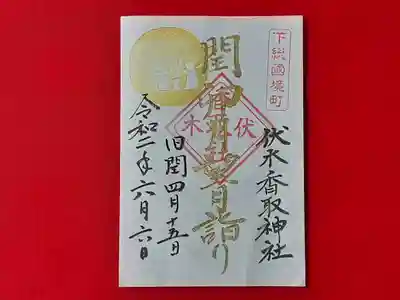 下総國境町
伏木香取神社
閏 月詣り
伏木
旧閏四月十五日
令和二年六月六日